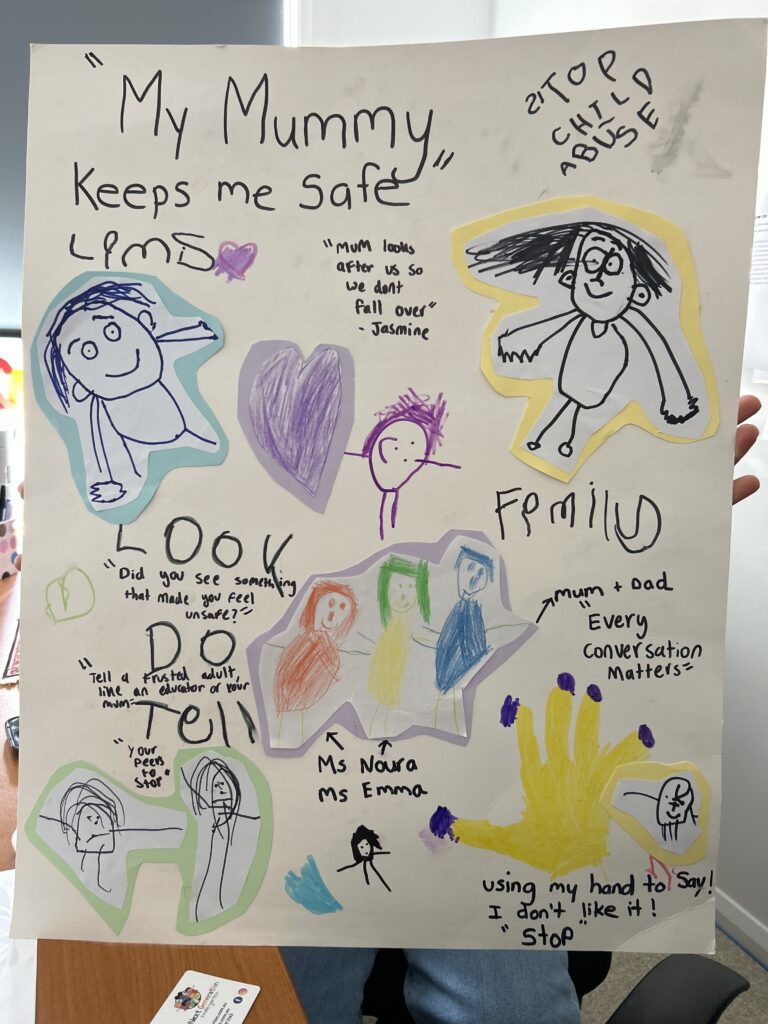 "My Mummy
Keeps me safe"
STOP
CHILD
ABUSE
"Mum looks
after us so
we dont
fall over"
- Jasmine
Family
LOOK
"Did you see something
that made you feel
unsafe?"
DO
"Tell a trusted adult,
like an educator or your
mum"
Tell
"your
peers
to
stop"
mum + Dad
"Every
Conversation
Matters"
Ms Noura
Ms Emma
using my hand to say!
I don't like it!
"Stop"
Next Generation